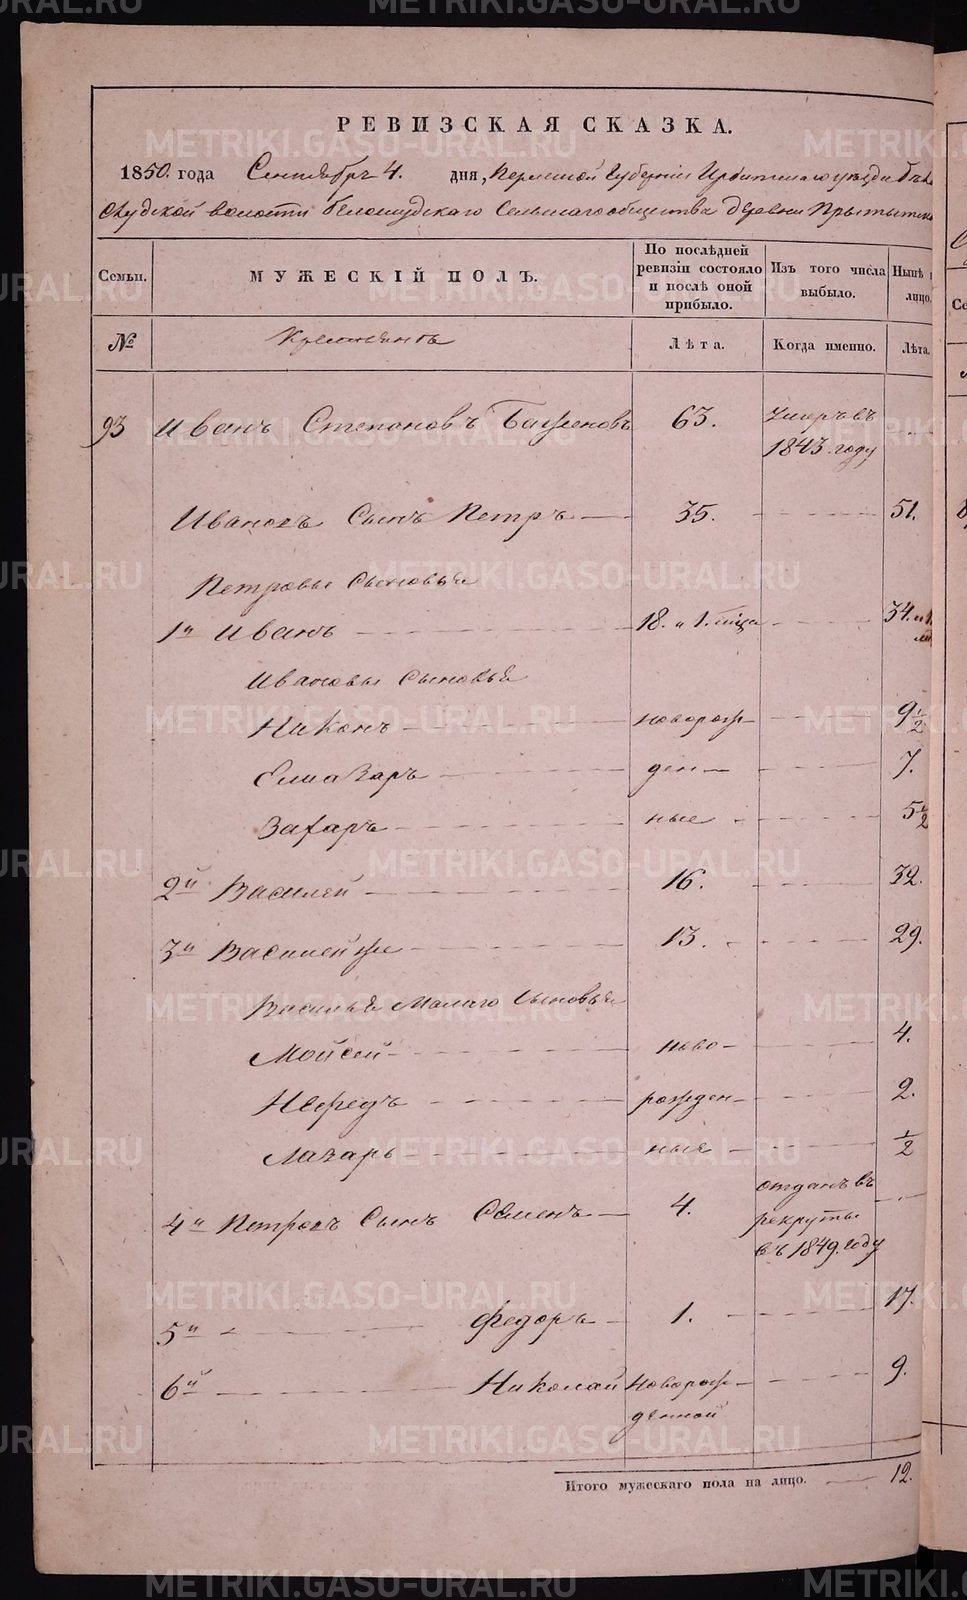 РЕВИЗСКАЯ СКАЗКА.
1850. года Сентября 4. дня, Пермской Губернiи Ирбитскаго уѣзда Бѣло
слудской волости Белослудскаго Сельскаго общества деревни
Семьи. МУЖЕСКIЙ ПОЛЪ. По послѣдней ревизiи состояло и послѣ оной прибыло. Изъ того числа выбыло. Нынѣ лицо.
№ Крестьянъ Лѣта. Когда именно. Лѣта.
93 Иванъ Степановъ Баженовъ 63. Умеръ въ
1843. году
Ивановъ Сынъ Петръ 35. 51.
Петровы Сыновья
1й Иванъ 18. и 34. и
Ивановы Сыновья
Никонъ новорож- 9 1/2
Елиазаръ ден- 7.
Захаръ ные 5 1/2
2й Василей 16. 32.
3й Василейже 13. 29.
Василья Малаго Сыновья
Мойсей ново- 4.
Нефедъ рожден- 2.
Лазарь ные 1/2
4й Петровъ Сынъ Семенъ 4. отданъ въ
рекруты
въ 1849. году
5й Федоръ 1. 17.
6й Николай Новорож- 9.
денной
Итого мужескаго пола на лицо. 12.
METRIKI.GASO-URAL.RU